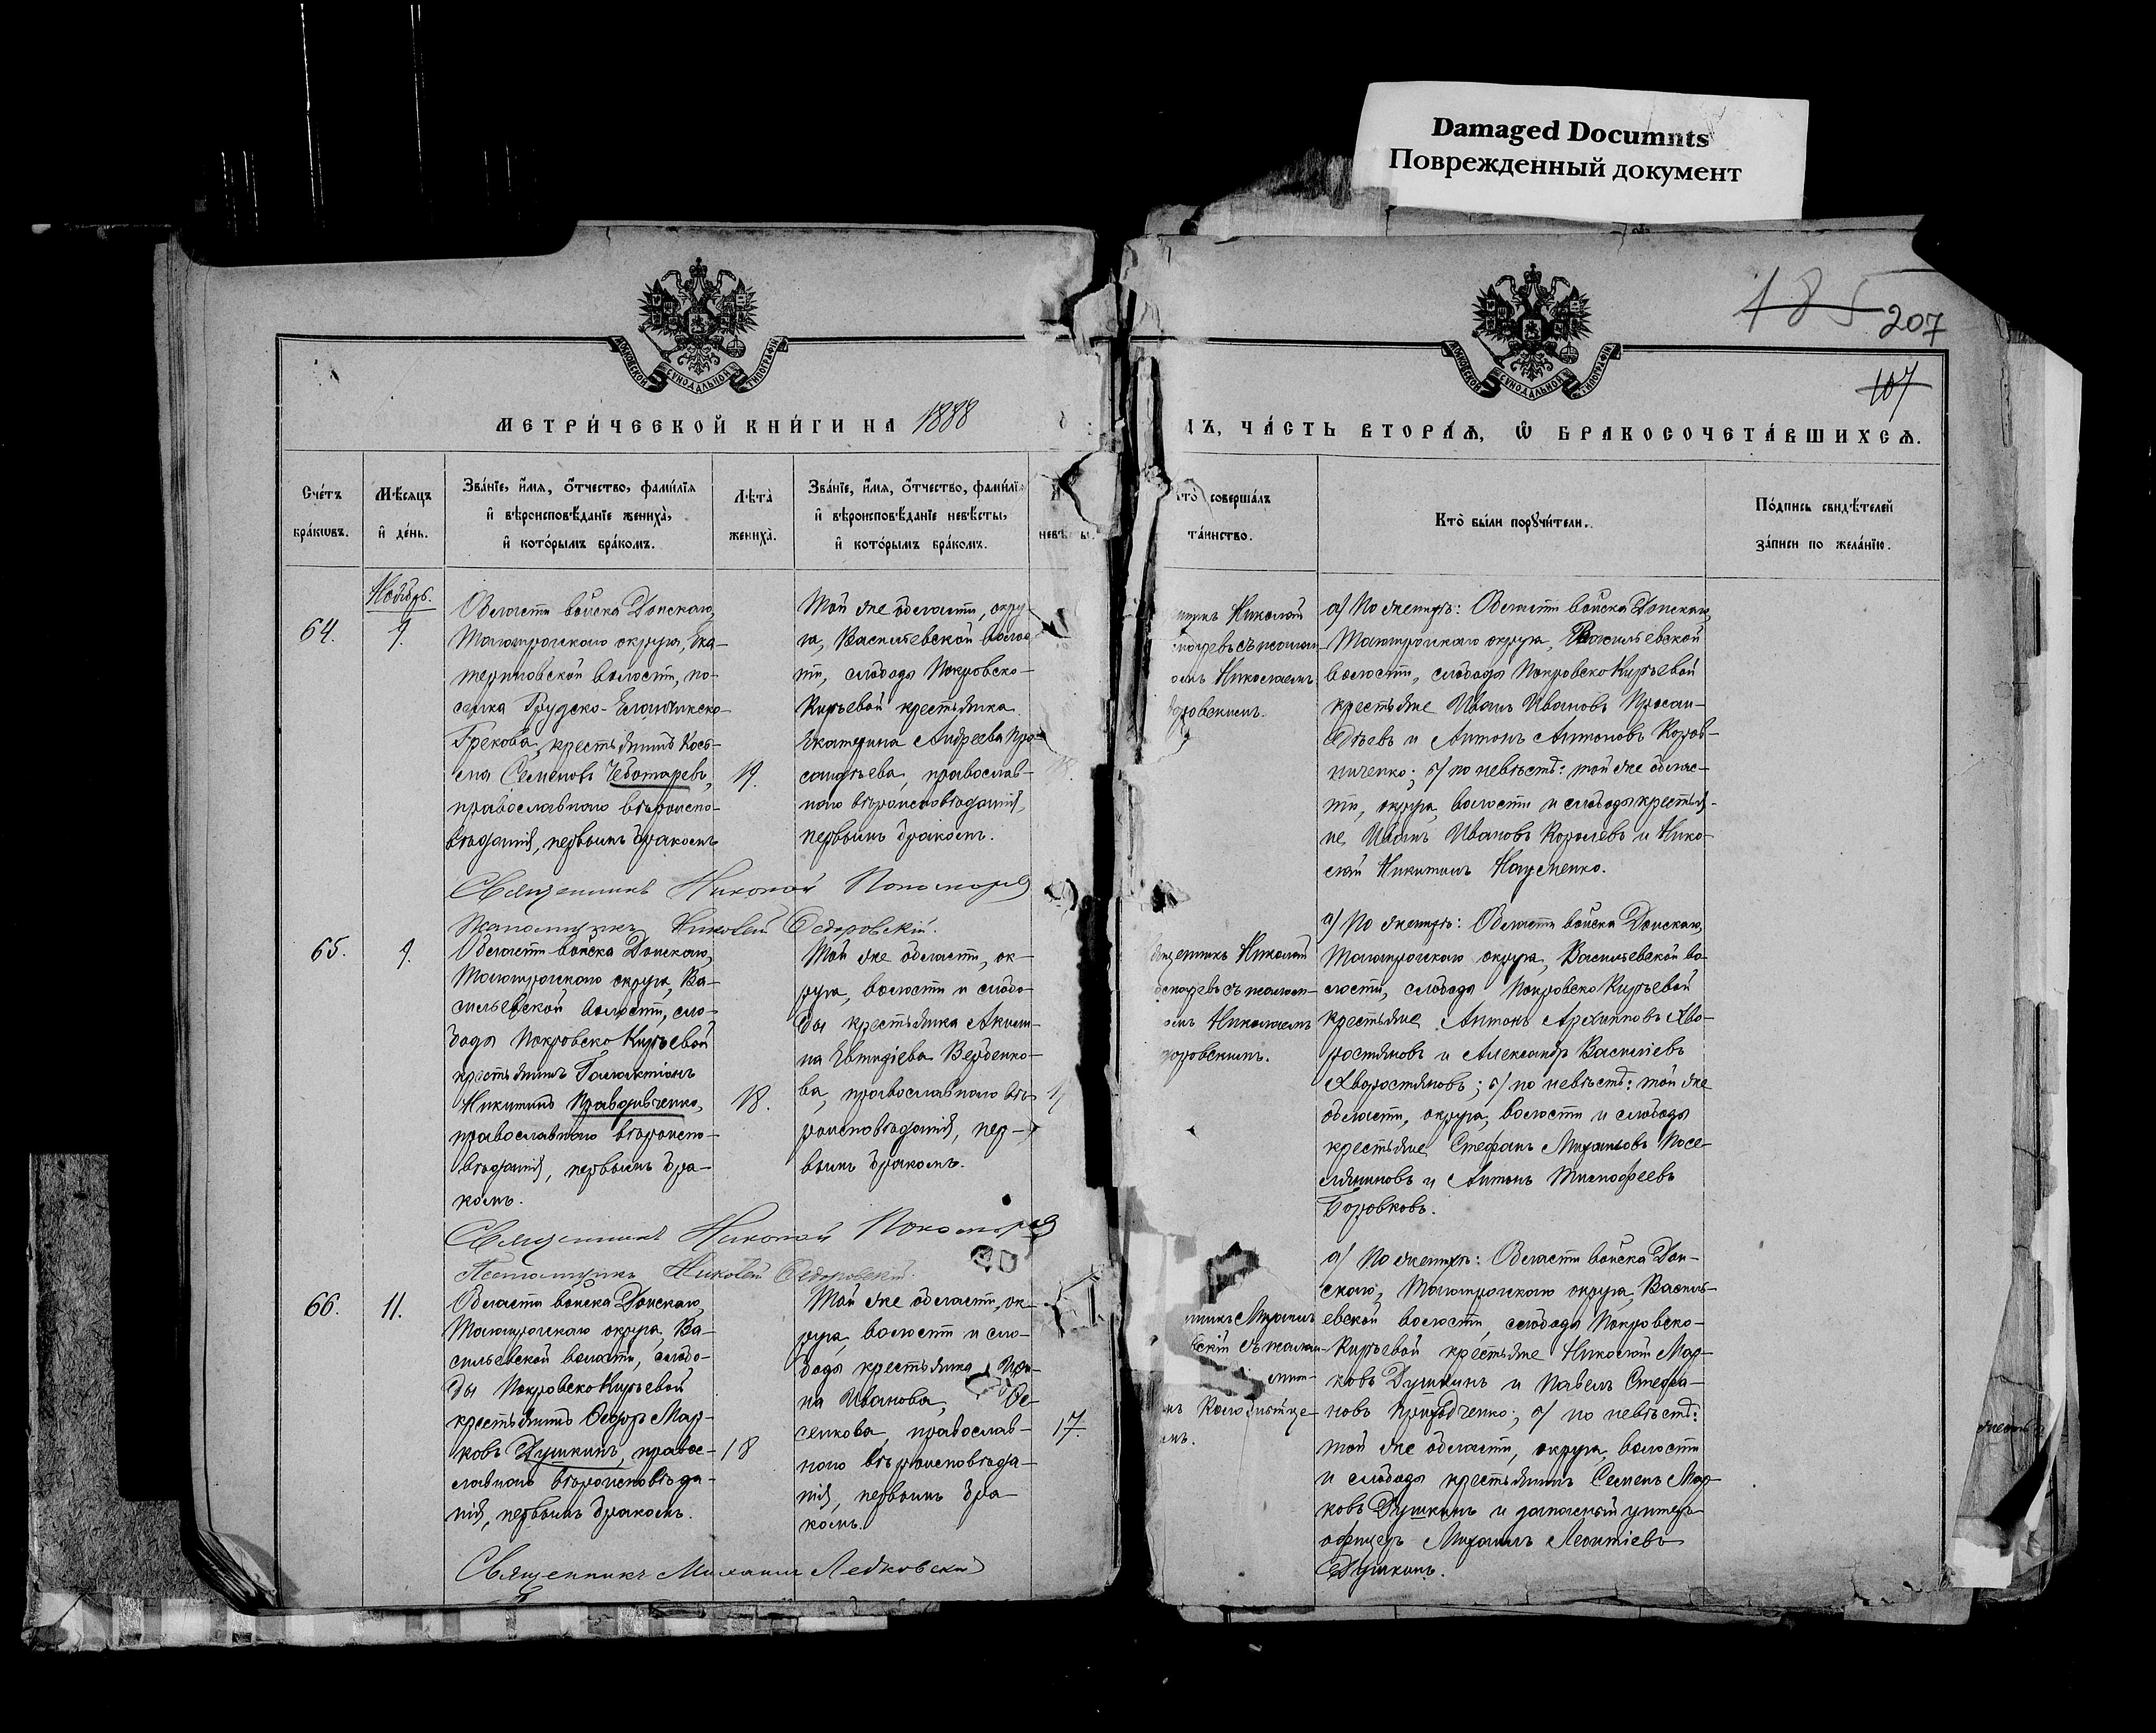 Damaged Documnts
Поврежденный документ
185 207
107
МОСКОВСКОЙ СѴНОДАЛЬНОЙ ТИПОГРАФІИ
МОСКОВСКОЙ СѴНОДАЛЬНОЙ ТИПОГРАФІИ
МЕТРИ́ЧЕСКОЙ КНИ́ГИ НА 1888
ДЪ, ЧА́СТЬ ВТОРА́Ѧ, Ѡ҆ БРАКОСОЧЕТА́ВШИХСѦ.
Сче́тъ
бра́кѡвъ.
Мѣ́сяцъ
и҆ де́нь.
Зва́нїе, и҆́мѧ, ѻ҆́тчество, фами́лїѧ
и҆ вѣроисповѣ́данїе жениха̀,
и҆ кото́рымъ бра́комъ.
Лѣта̀
жениха̀.
Зва́нїе, и҆́мѧ, ѻ҆́тчество, фами́лїѧ
и҆ вѣроисповѣ́данїе невѣ́сты,
и҆ кото́рымъ бра́комъ.
невѣ ы.
то̀ соверша́лъ
та́инство.
Кто̀ бы́ли порꙋчи́тели.
По́дпись свидѣ́телей
за́писи по жела́нїю.
Ноябрь.
64.
9.
Области войска Донскаго,
Таганрогскаго округа, Ека-
териновской волости, по-
селка Грузско-Еланчикско-
Грекова, крестьянинъ Козь-
ма Семеновъ Чеботаревъ,
православнаго вѣроиспо-
вѣданія, первымъ бракомъ
19.
Той же области, окру-
га, Васильевской волос
ти, слободы Покровско-
Кирѣевой крестьянка
Екатерина Андреева Про-
сандѣева, православ-
наго вѣроисповѣданія,
первымъ бракомъ.
Николай
съ псалом-
Николаемъ
а) По женихѣ: Области войска Донскаго,
Таганрогскаго округа, Васильевской
волости, слободы Покровско Кирѣевой
крестьяне Иванъ Ивановъ Просан-
дѣевъ и Антонъ Антоновъ Коров-
ниченко; б) по невѣстѣ: той же облас-
ти, округа, волости и слободы крестья-
не Иванъ Ивановъ Королевъ и Нико-
лай Никитинъ Науменко.
Священникъ Николай Пономарев
Псаломщикъ Николай Федоровскій.
65.
9.
Области войска Донскаго,
Таганрогскаго округа, Ва-
сильевской волости, сло-
боды Покровско Кирѣевой
крестьянинъ Галактіонъ
Никитинъ Правдивченко,
православнаго вѣроиспо-
вѣданія, первымъ бра-
комъ.
18.
Той же области, ок-
руга, волости и слобо-
ды крестьянка Акили-
на Евтидіева Вербенко-
ва, православнаго вѣ-
роисповѣданія, пер-
вымъ бракомъ.
Николай
съ псалом-
Николаемъ
а) По женихѣ: Области войска Донскаго,
Таганрогскаго округа, Васильевской во-
лости, слободы Покровско Кирѣевой
крестьяне Антонъ Архиповъ Хво-
ростяновъ и Александръ Василіевъ
Хворостяновъ; б) по невѣстѣ: той же
области, округа, волости и слободы
крестьяне Стефанъ Михаиловъ Посе-
ляниновъ и Антонъ Тимофеевъ
Боровковъ.
Священникъ Николай Пономарев
Псаломщикъ Николай Федоровскій.
66.
11.
Области войска Донскаго,
Таганрогскаго округа, Ва-
сильевской волости, слобо-
ды Покровско Кирѣевой
крестьянинъ Ѳедоръ Мар-
ковъ Душкинъ, правос-
лавнаго вѣроисповѣда-
нія, первымъ бракомъ.
18
Той же области, ок-
руга, волости и сло-
боды крестьянка
на Иванова, Се-
ленкова, православ-
наго вѣроисповѣда-
нія, первымъ бра-
комъ.
17.
Михаилъ
скій съ псалом-
а) По женихѣ: Области войска Дон-
скаго, Таганрогскаго округа, Василь-
евской волости, слободы Покровско-
Кирѣевой крестьяне Николай Мар-
ковъ Душкинъ и Павелъ Стефа-
новъ; б) по невѣстѣ:
той же области, округа, волости
и слободы крестьянинъ Семенъ Мар-
ковъ Душкинъ и запасный унтеръ-
офицеръ Михаилъ Леонтіевъ
Душкинъ.
Священникъ Михаилъ Ледковскій